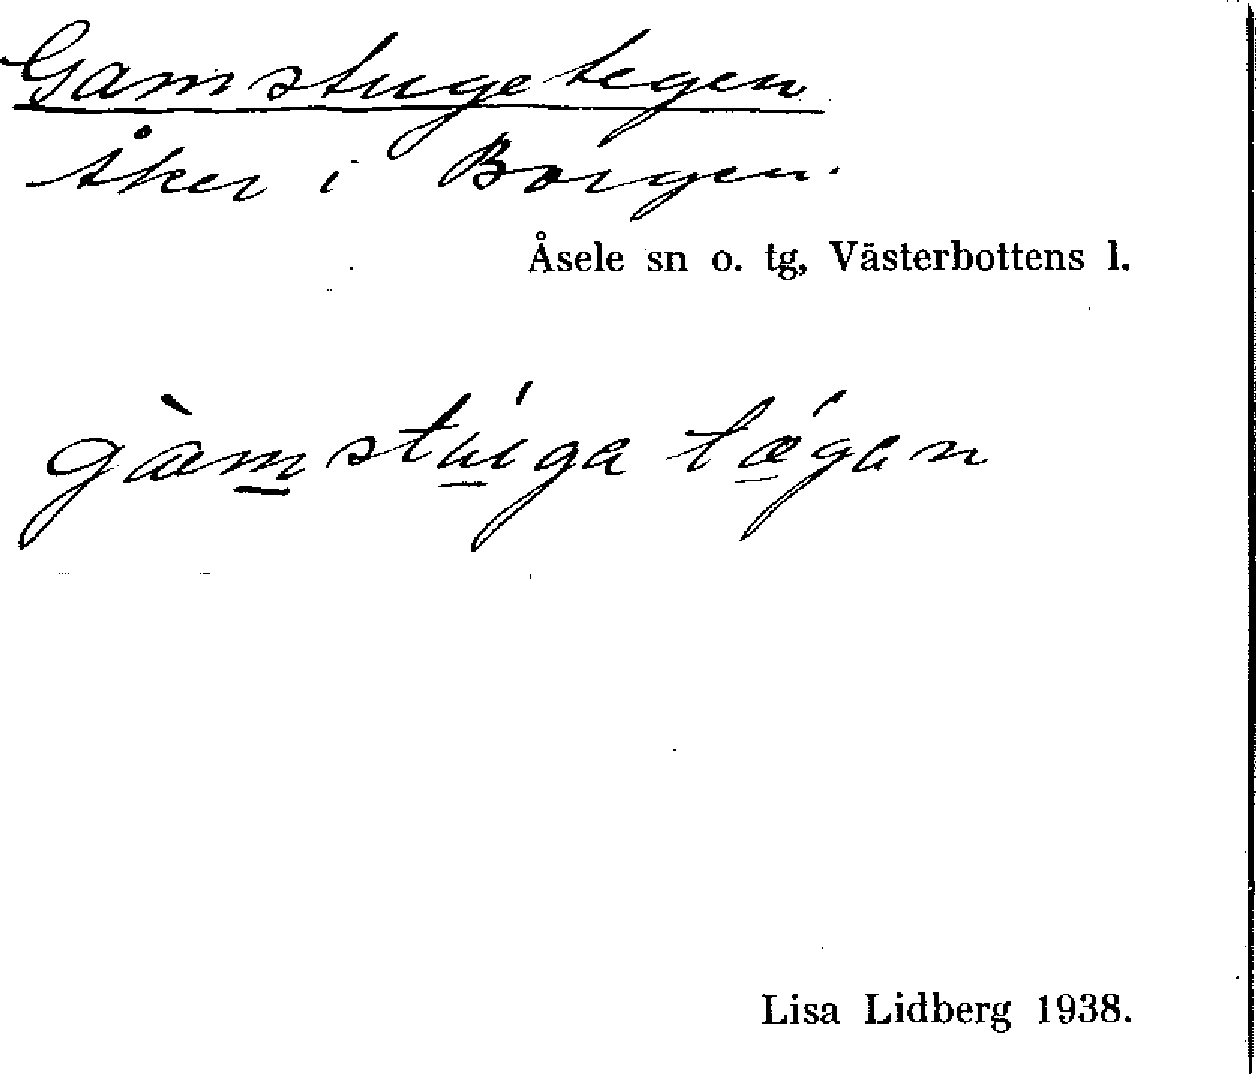 Gamstugetegen
Åker i Borgen.
Åsele sn o. tg, Västerbottens l.
gàmstúga tǽgan
Lisa Lidberg 1938.